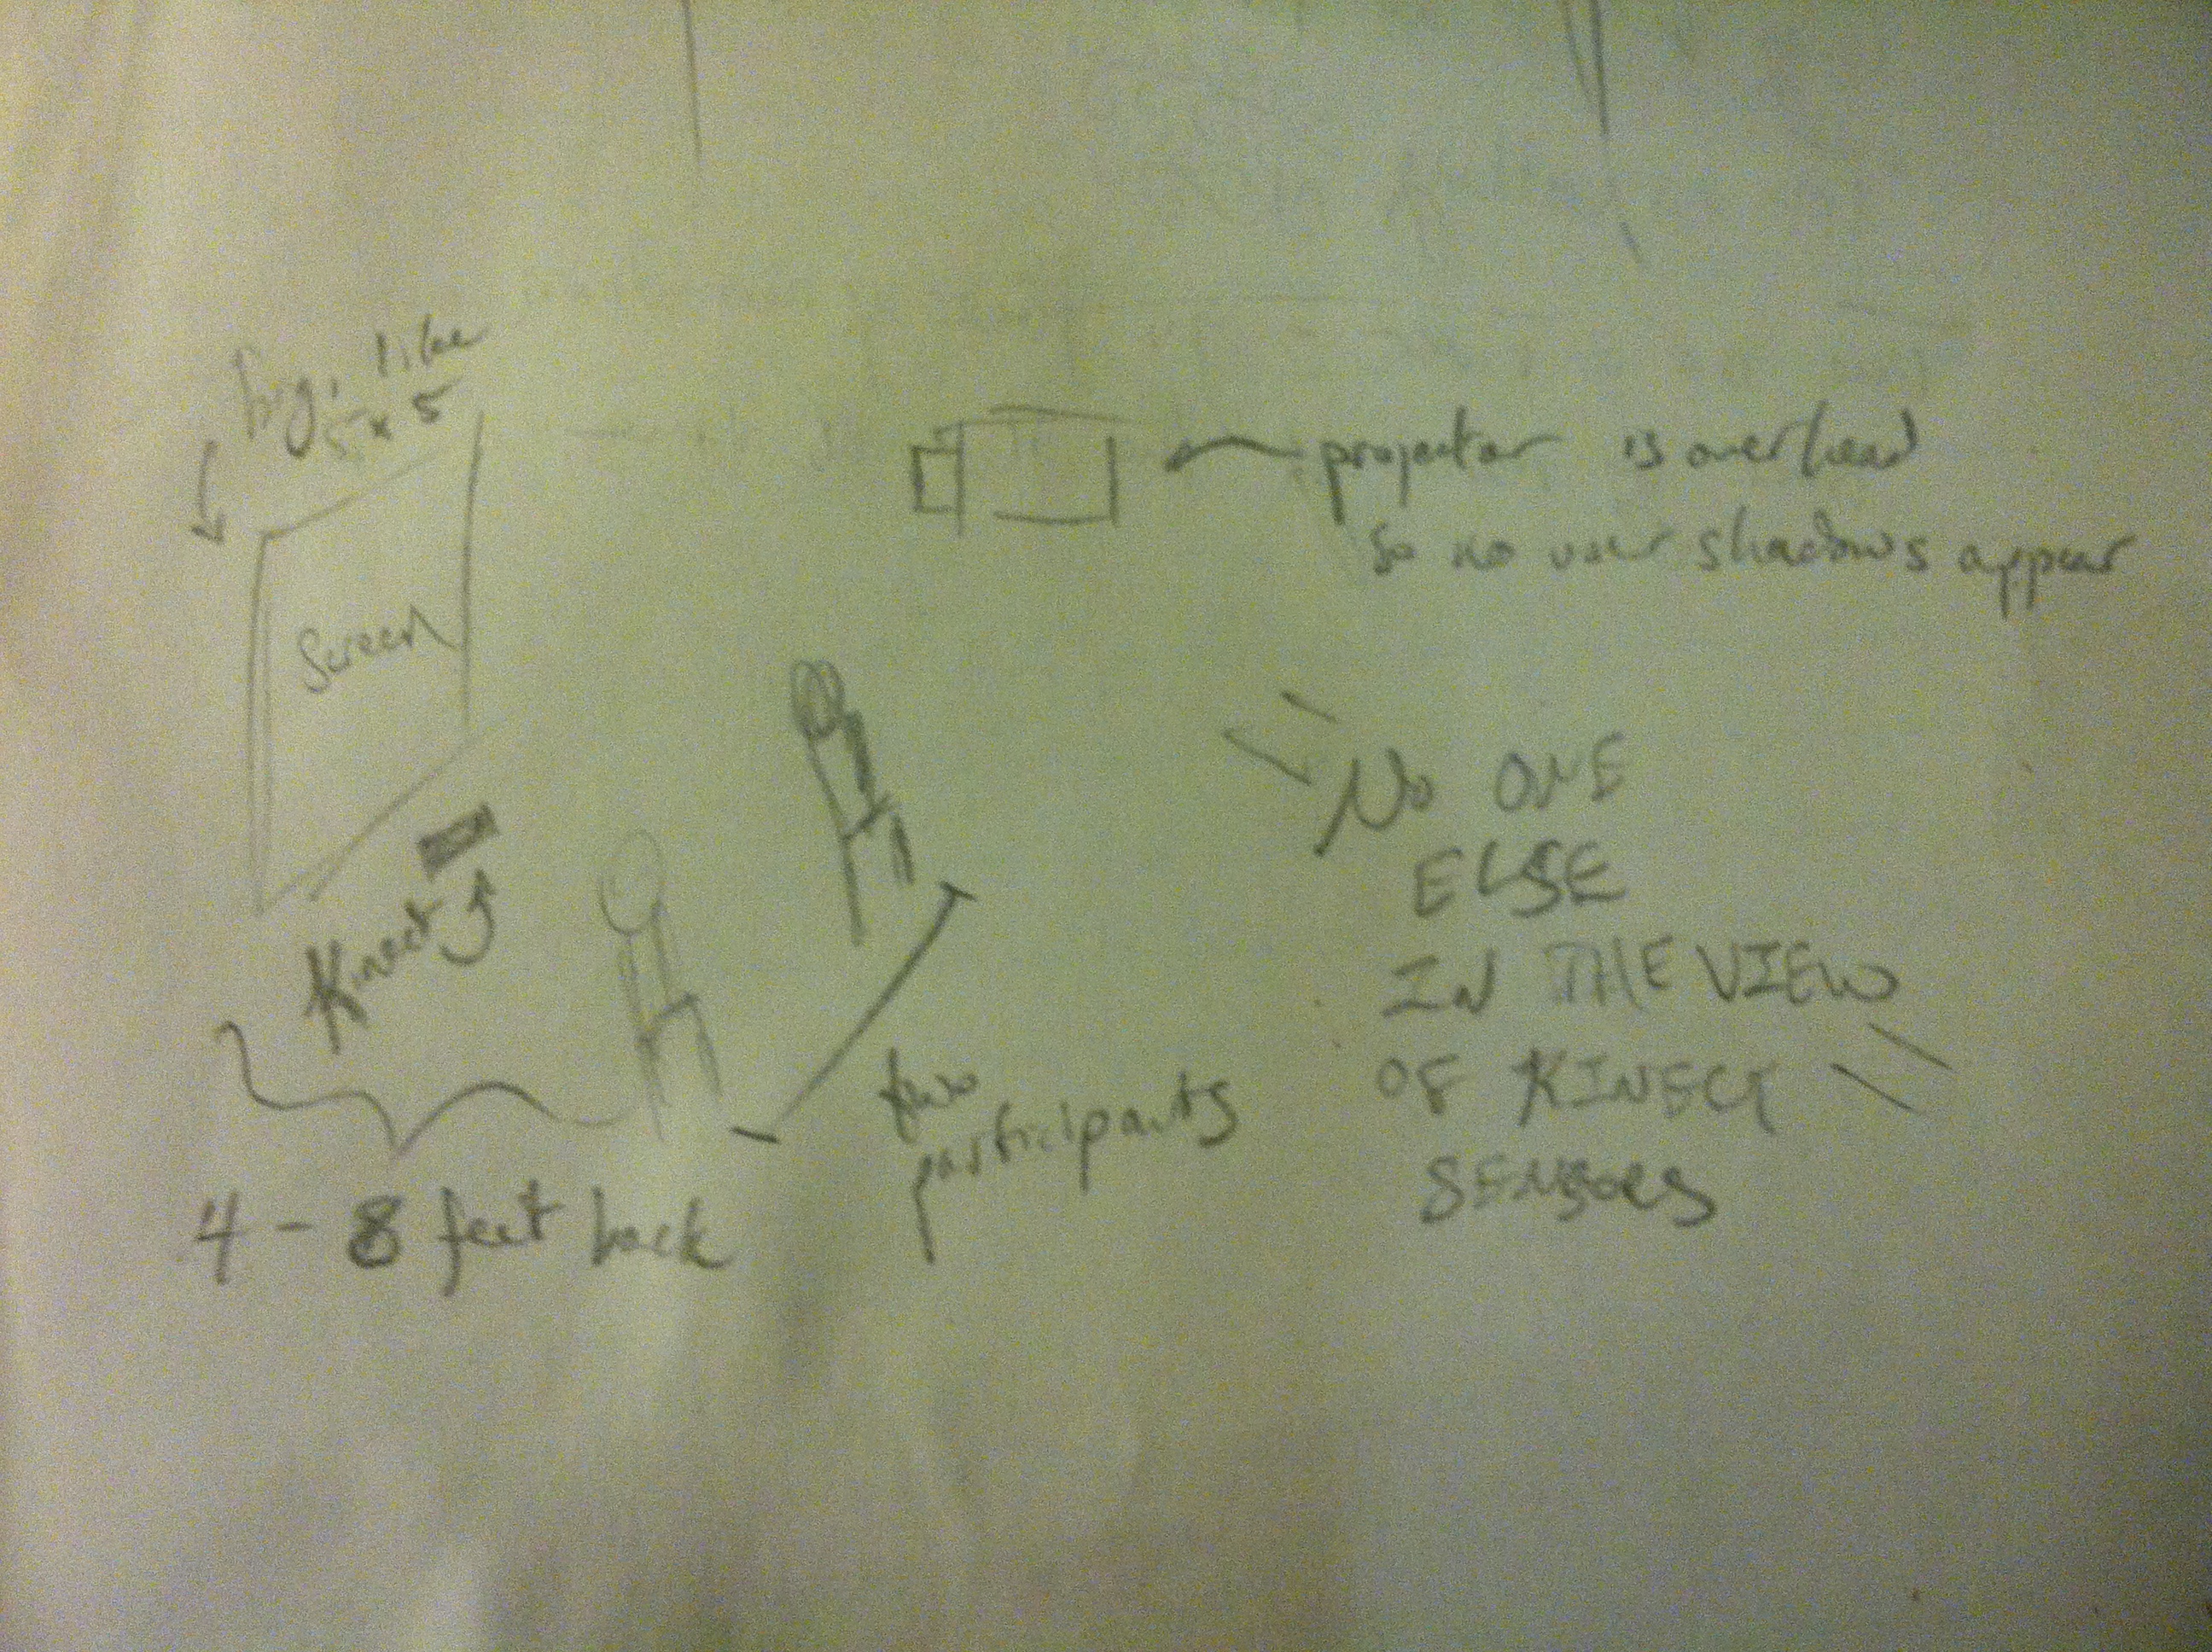 big, like
5 x 5
Screen
Kinect
4 - 8 feet back
two
participants
projector is overhead
so no user shadows appear
No ONE
ELSE
IN THE VIEW
OF KINECT
SENSORS